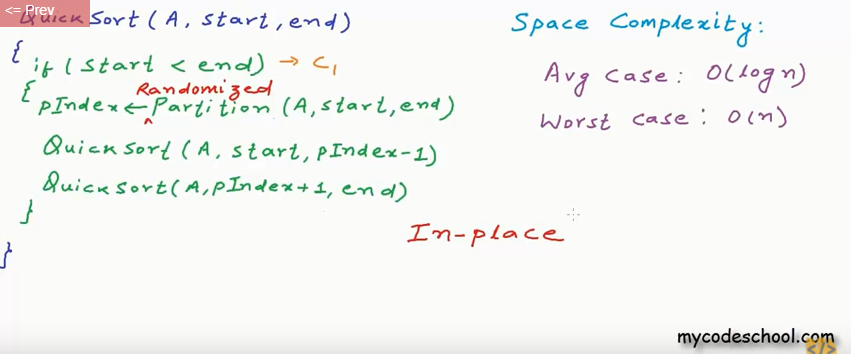 <= Prev
QuickSort (A, start, end)
{
if (start < end) → C1
{
Randomized
pIndex ← Partition (A, start, end)
^
QuickSort (A, start, pIndex-1)
QuickSort (A, pIndex+1, end)
}
}
Space Complexity:
Avg case: O(log n)
Worst case: O(n)
In-place
mycodeschool.com
</>